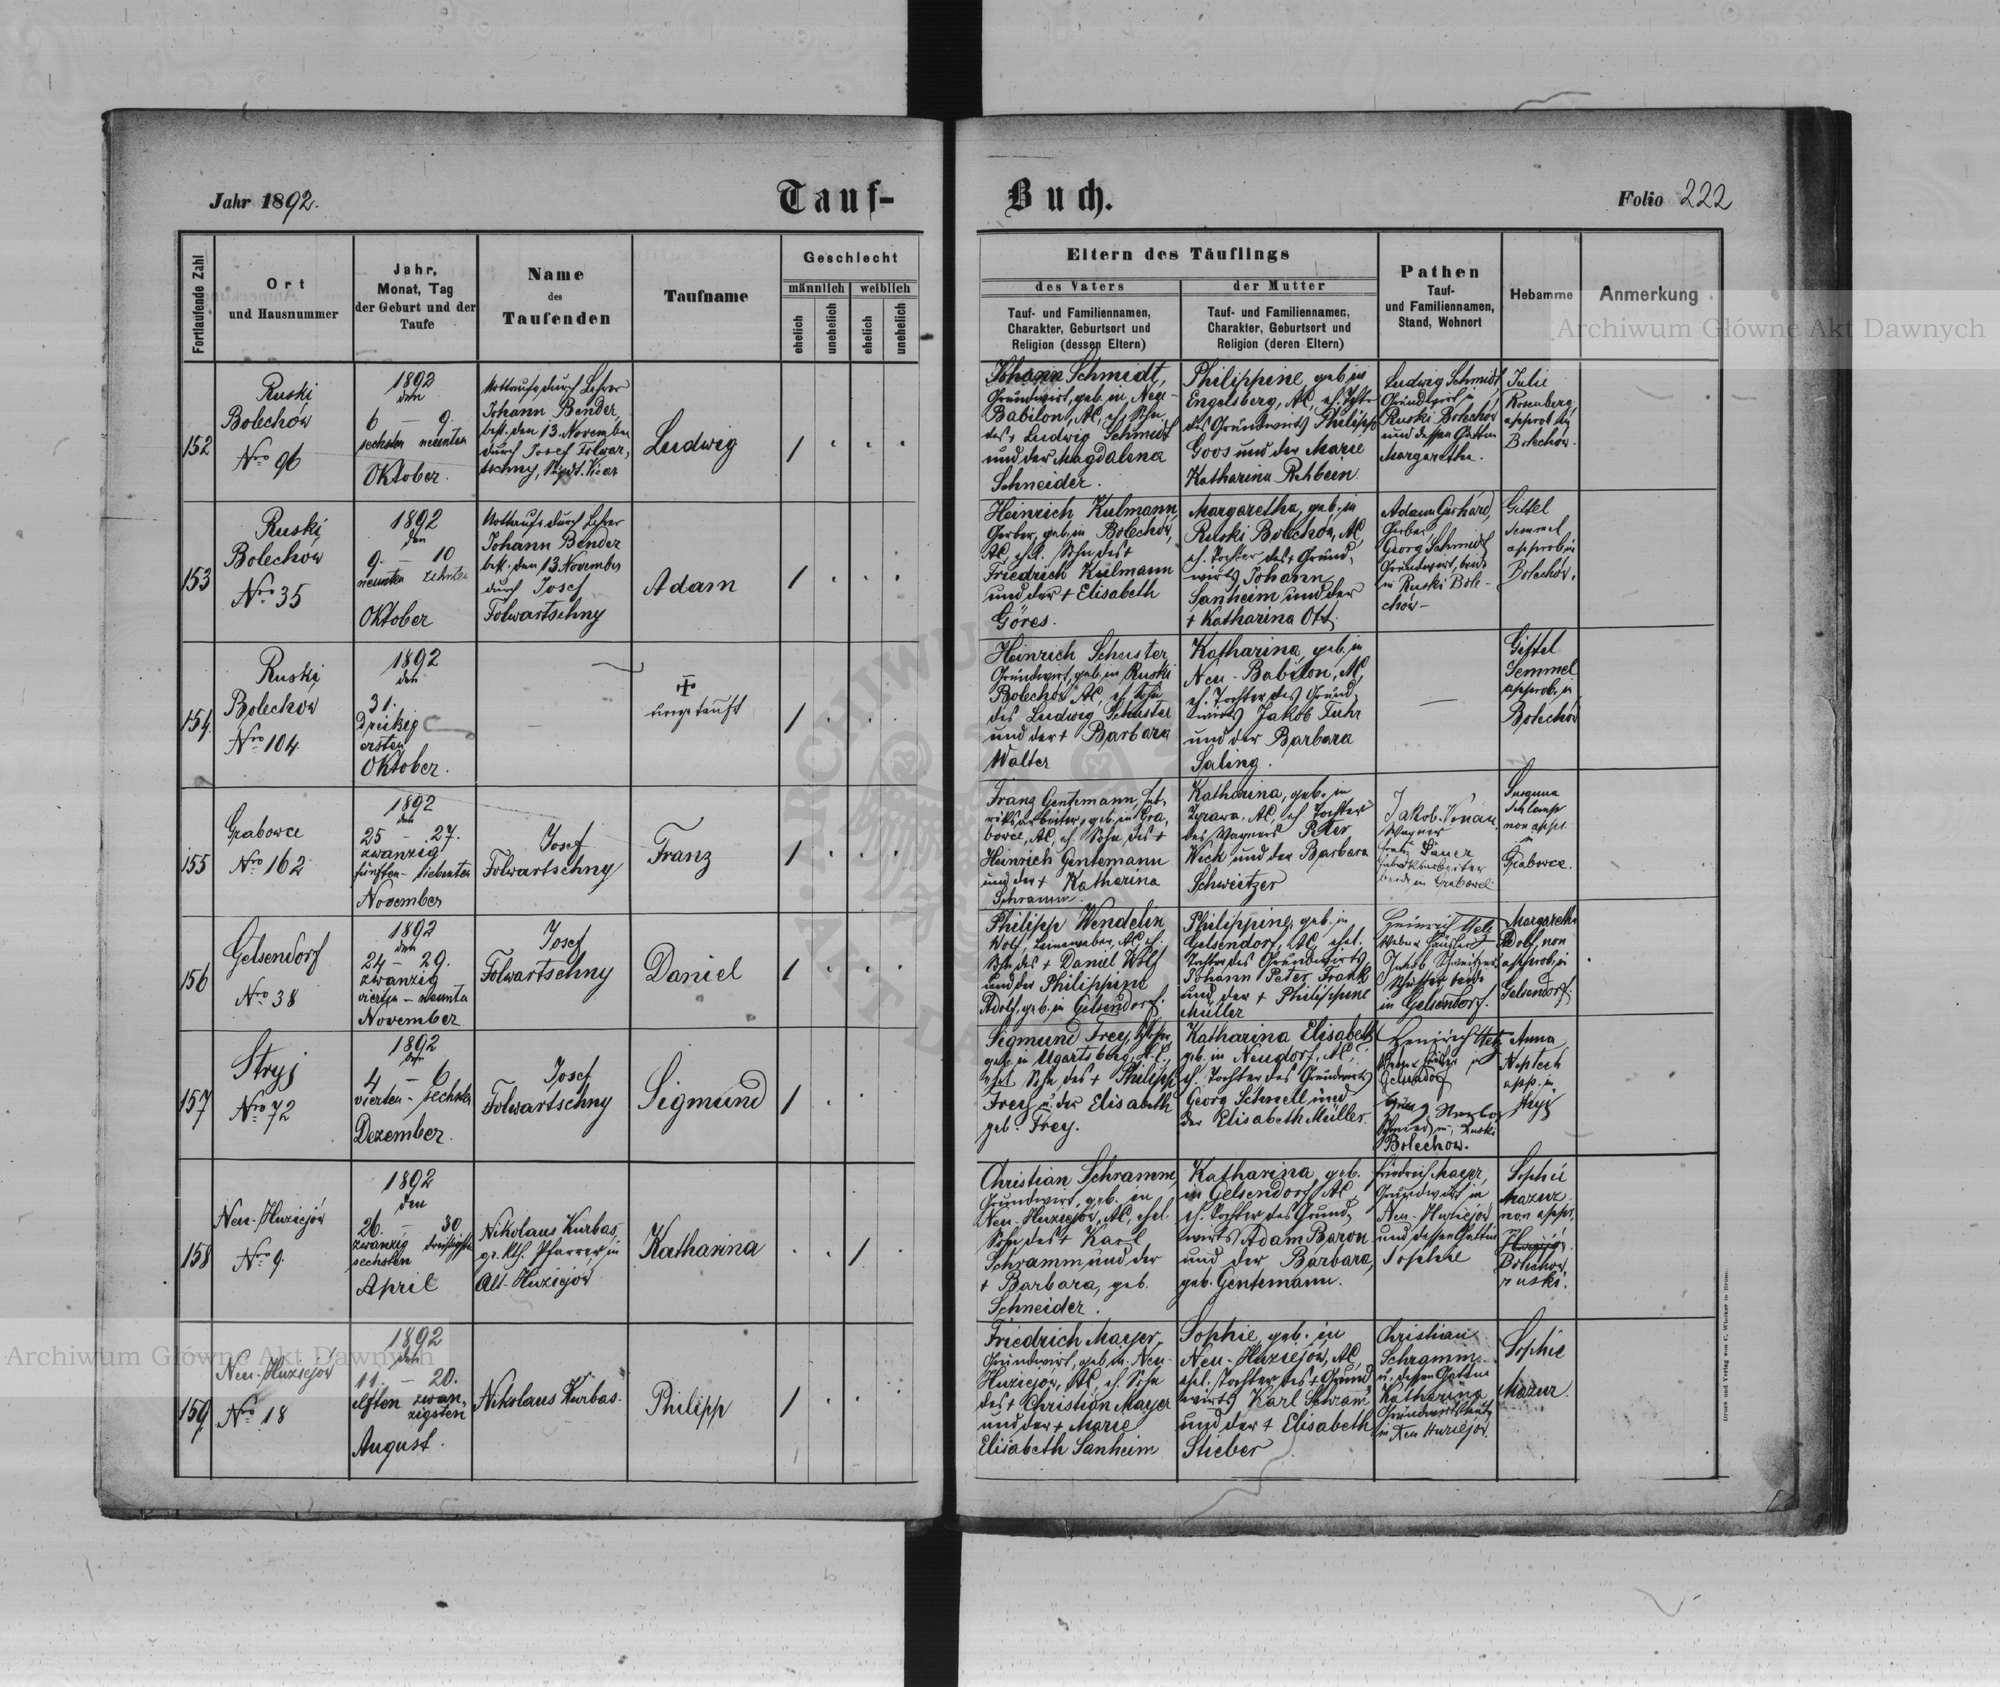 Jahr 1892.
Tauf-
Buch.
Folio 222
Fortlaufende Zahl
Ort
und Hausnummer
Jahr,
Monat, Tag
der Geburt und der
Taufe
Name
des
Taufenden
Taufname
Geschlecht
männlich
weiblich
ehelich
unehelich
ehelich
unehelich
Eltern des Täuflings
des Vaters
Tauf- und Familiennamen,
Charakter, Geburtsort und
Religion (dessen Eltern)
der Mutter
Tauf- und Familiennamen,
Charakter, Geburtsort und
Religion (deren Eltern)
Pathen
Tauf-
und Familiennamen,
Stand, Wohnort
Hebamme
Anmerkung
Archiwum Główne Akt Dawnych
152
Ruski
Bolechów
Nro 96
1892
den
6 — 9.
sechsten neunten
Oktober.
Nottaufe durch Lehrer
Johann Bender,
best. den 13. November
durch Josef Folwar,
tschny,
Ludwig
1
Johann Schmidt,
Grundwirt, geb. in Neu-
Babilon, AC, eh. Sohn
des + Ludwig Schmidt
und der Magdalena
Schneider.
Philippine geb. in
Engelsberg, AC, eh. Tochter
des Grundwirts Philipp
Goos und der Marie
Katharina Rehbein.
Ludwig Schmidt,
Grundwirt in
Ruski Bolechów
und dessen Gattin
Margaretha.
Julie
Rosenberg,
approb. in
Bolechów.
153
Ruski
Bolechów
Nro 35
1892
den
9. — 10
neunten zehnten
Oktober
Nottaufe durch Lehrer
Johann Bender
best. den 13 November
durch Josef
Folwartschny
Adam
1
Heinrich Kulmann,
Gerber, geb. in Bolechów,
AC, eh. Sohn des +
Friedrich Kulmann
und der + Elisabeth
Göres.
Margaretha, geb. in
Ruski Bolechów, AC,
eh. Tochter des + Grund-
wirts Johann
Sanheim und der
+ Katharina Ott.
Adam Gerhard,
Gerber,
Georg Schmidt
Grundwirt, beide
in Ruski Bole-
chów —
Gittel
Semmel,
approb. in
Bolechów.
154
Ruski
Bolechów
Nro 104
1892
den
31.
Dreißig
ersten
Oktober.
—
+
ungetauft
1
Heinrich Schuster
Grundwirt, geb. in Ruski
Bolechów AC, eh. Sohn
des Ludwig Schuster
und der + Barbara
Walter
Katharina, geb. in
Neu-Babilon, AC,
eh. Tochter des Grund-
wirts Jakob Fuhr
und der Barbara
Saling.
—
Gittel
Semmel
approb. in
Bolechów
155
Grabowce
Nro 162
1892
den
25 — 27.
zwanzig
fünften — siebenten
November
Josef
Folwartschny
Franz
1
Franz Gentemann, Fab-
riksarbeiter, geb. in Gra-
bowce, AC, eh. Sohn des +
Heinrich Gentemann
und der + Katharina
Schramm.
Katharina, geb. in
Zyrawa, AC, eh. Tochter
des Wagners Peter
Weck und der Barbara
Schweitzer
Jakob
Wagner
Fabriksarbeiter
beide in Grabowce.
Susanna
non appr.
in
Grabowce.
156
Gelsendorf
Nro 38
1892
den
24 — 29.
zwanzig
vierten — neunten
November
Josef
Folwartschny
Daniel
1
Philipp Wendelin
Wolf, Leineweber, AC, eh.
Sohn des + Daniel Wolf
und der Philippine
Adolf, geb. in Gelsendorf.
Philippine, geb. in
Gelsendorf, AC, ehel.
Tochter des Grundwirts
Johann Peter Frank
und der + Philippine
Müller
Heinrich
Weber
Jakob Schweitzer
beide
in Gelsendorf.
Margaretha
Adolf, non
approb. in
Gelsendorf.
157
Stryj
Nro 72
1892
den
4 — 6
vierten — sechsten
Dezember.
Josef
Folwartschny
Sigmund
1
Sigmund Frey,
geb. in Ugartsberg, A.C.,
ehel Sohn des + Philipp
Frey u. der Elisabeth
geb. Frey.
Katharina Elisabeth
geb. in Neudorf, AC,
eh. Tochter des Grundwirts
Georg Schnell und
der Elisabeth Müller.
Heinrich
Gelsendorf
Schmied in Ruski
Bolechów.
Anna
app. in
Stryj
158
Neu-Huziejów
Nro 9.
1892
den
26. — 30.
zwanzig dreißigsten
sechsten
April
Nikolaus Kurbas,
gr. kth. Pfarrer in
Alt-Huziejów
Katharina
1
Christian Schramm
Grundwirt, geb. in
Neu-Huziejów, AC, ehel.
Sohn des + Karl
Schramm und der
+ Barbara, geb.
Schneider.
Katharina, geb.
in Gelsendorf AC,
eh. Tochter des Grund-
wirts Adam Baron
und der Barbara,
geb. Gentemann.
Friedrich Mayer,
Grundwirt in
Neu-Huziejów
und dessen Gattin
Sophie
Sophie
Mazur
non appr.
in
Bolechów
ruski.
159
Neu-Huziejów
Nro 18
1892
den
11. — 20.
elften zwan-
zigsten
August.
Nikolaus Kurbas.
Philipp
1
Friedrich Mayer,
Grundwirt, geb. in Neu-
Huziejów, AC, eh. Sohn
des + Christian Mayer
und der + Marie
Elisabeth Sanheim
Sophie, geb. in
Neu-Huziejów, AC,
ehel. Tochter des + Grund-
wirts Karl Schramm
und der + Elisabeth
Stieber
Christian
Schramm
u. dessen Gattin
Katharina
Grundwirtsleute
in Neu Huziejów.
Sophie
Mazur.
Archiwum Główne Akt Dawnych